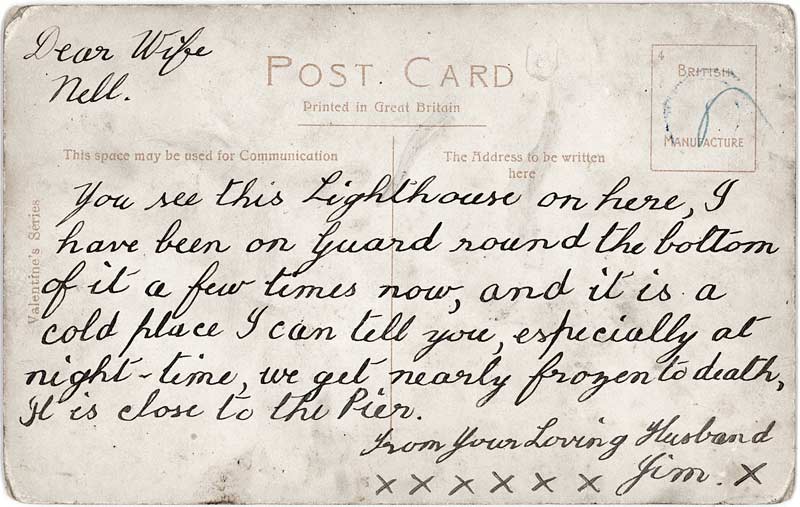 Dear Wife
Nell.
POST CARD
Printed in Great Britain
4
BRITISH
MANUFACTURE
This space may be used for Communication
The Address to be written
here
Valentine's Series
You see this Lighthouse on here, I
have been on Guard round the bottom
of it a few times now, and it is a
cold place I can tell you, especially at
night-time, we get nearly frozen to death,
It is close to the Pier.
From Your Loving Husband
Jim. X
X X X X X X